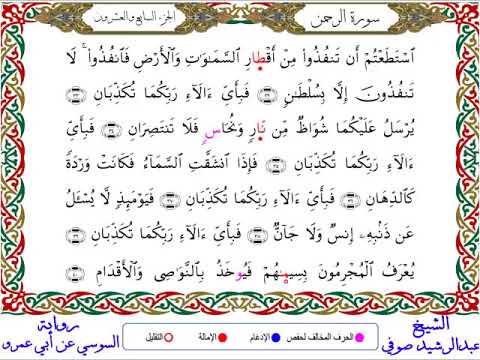 سورة الرحمن
الجزء السابع والعشرون
ٱسْتَطَعْتُمْ أَن تَنفُذُوا۟ مِنْ أَقْطَارِ ٱلسَّمَـٰوَٰتِ وَٱلْأَرْضِ فَٱنفُذُوا۟ ۚ لَا
تَنفُذُونَ إِلَّا بِسُلْطَـٰنٍ ٣٢ فَبِأَىِّ ءَالَآءِ رَبِّكُمَا تُكَذِّبَانِ ٣٣
يُرْسَلُ عَلَيْكُمَا شُوَاظٌ مِّن نَّارٍ وَنُحَاسٍ فَلَا تَنتَصِرَانِ ٣٤ فَبِأَىِّ
ءَالَآءِ رَبِّكُمَا تُكَذِّبَانِ ٣٥ فَإِذَا ٱنشَقَّتِ ٱلسَّمَآءُ فَكَانَتْ وَرْدَةً
كَٱلدِّهَانِ ٣٦ فَبِأَىِّ ءَالَآءِ رَبِّكُمَا تُكَذِّبَانِ ٣٧ فَيَوْمَئِذٍ لَّا يُسْـَٔلُ
عَن ذَنۢبِهِۦٓ إِنسٌ وَلَا جَآنٌّ ٣٨ فَبِأَىِّ ءَالَآءِ رَبِّكُمَا تُكَذِّبَانِ ٣٩
يُعْرَفُ ٱلْمُجْرِمُونَ بِسِيمَـٰهُمْ فَيُوخَذُ بِٱلنَّوَٰصِى وَٱلْأَقْدَامِ ٤٠
الشيخ
عبدالرشيد صوفي
الحرف المخالف لحفص
الإدغام
الإمالة
التقليل
رواية
السوسي عن أبي عمرو